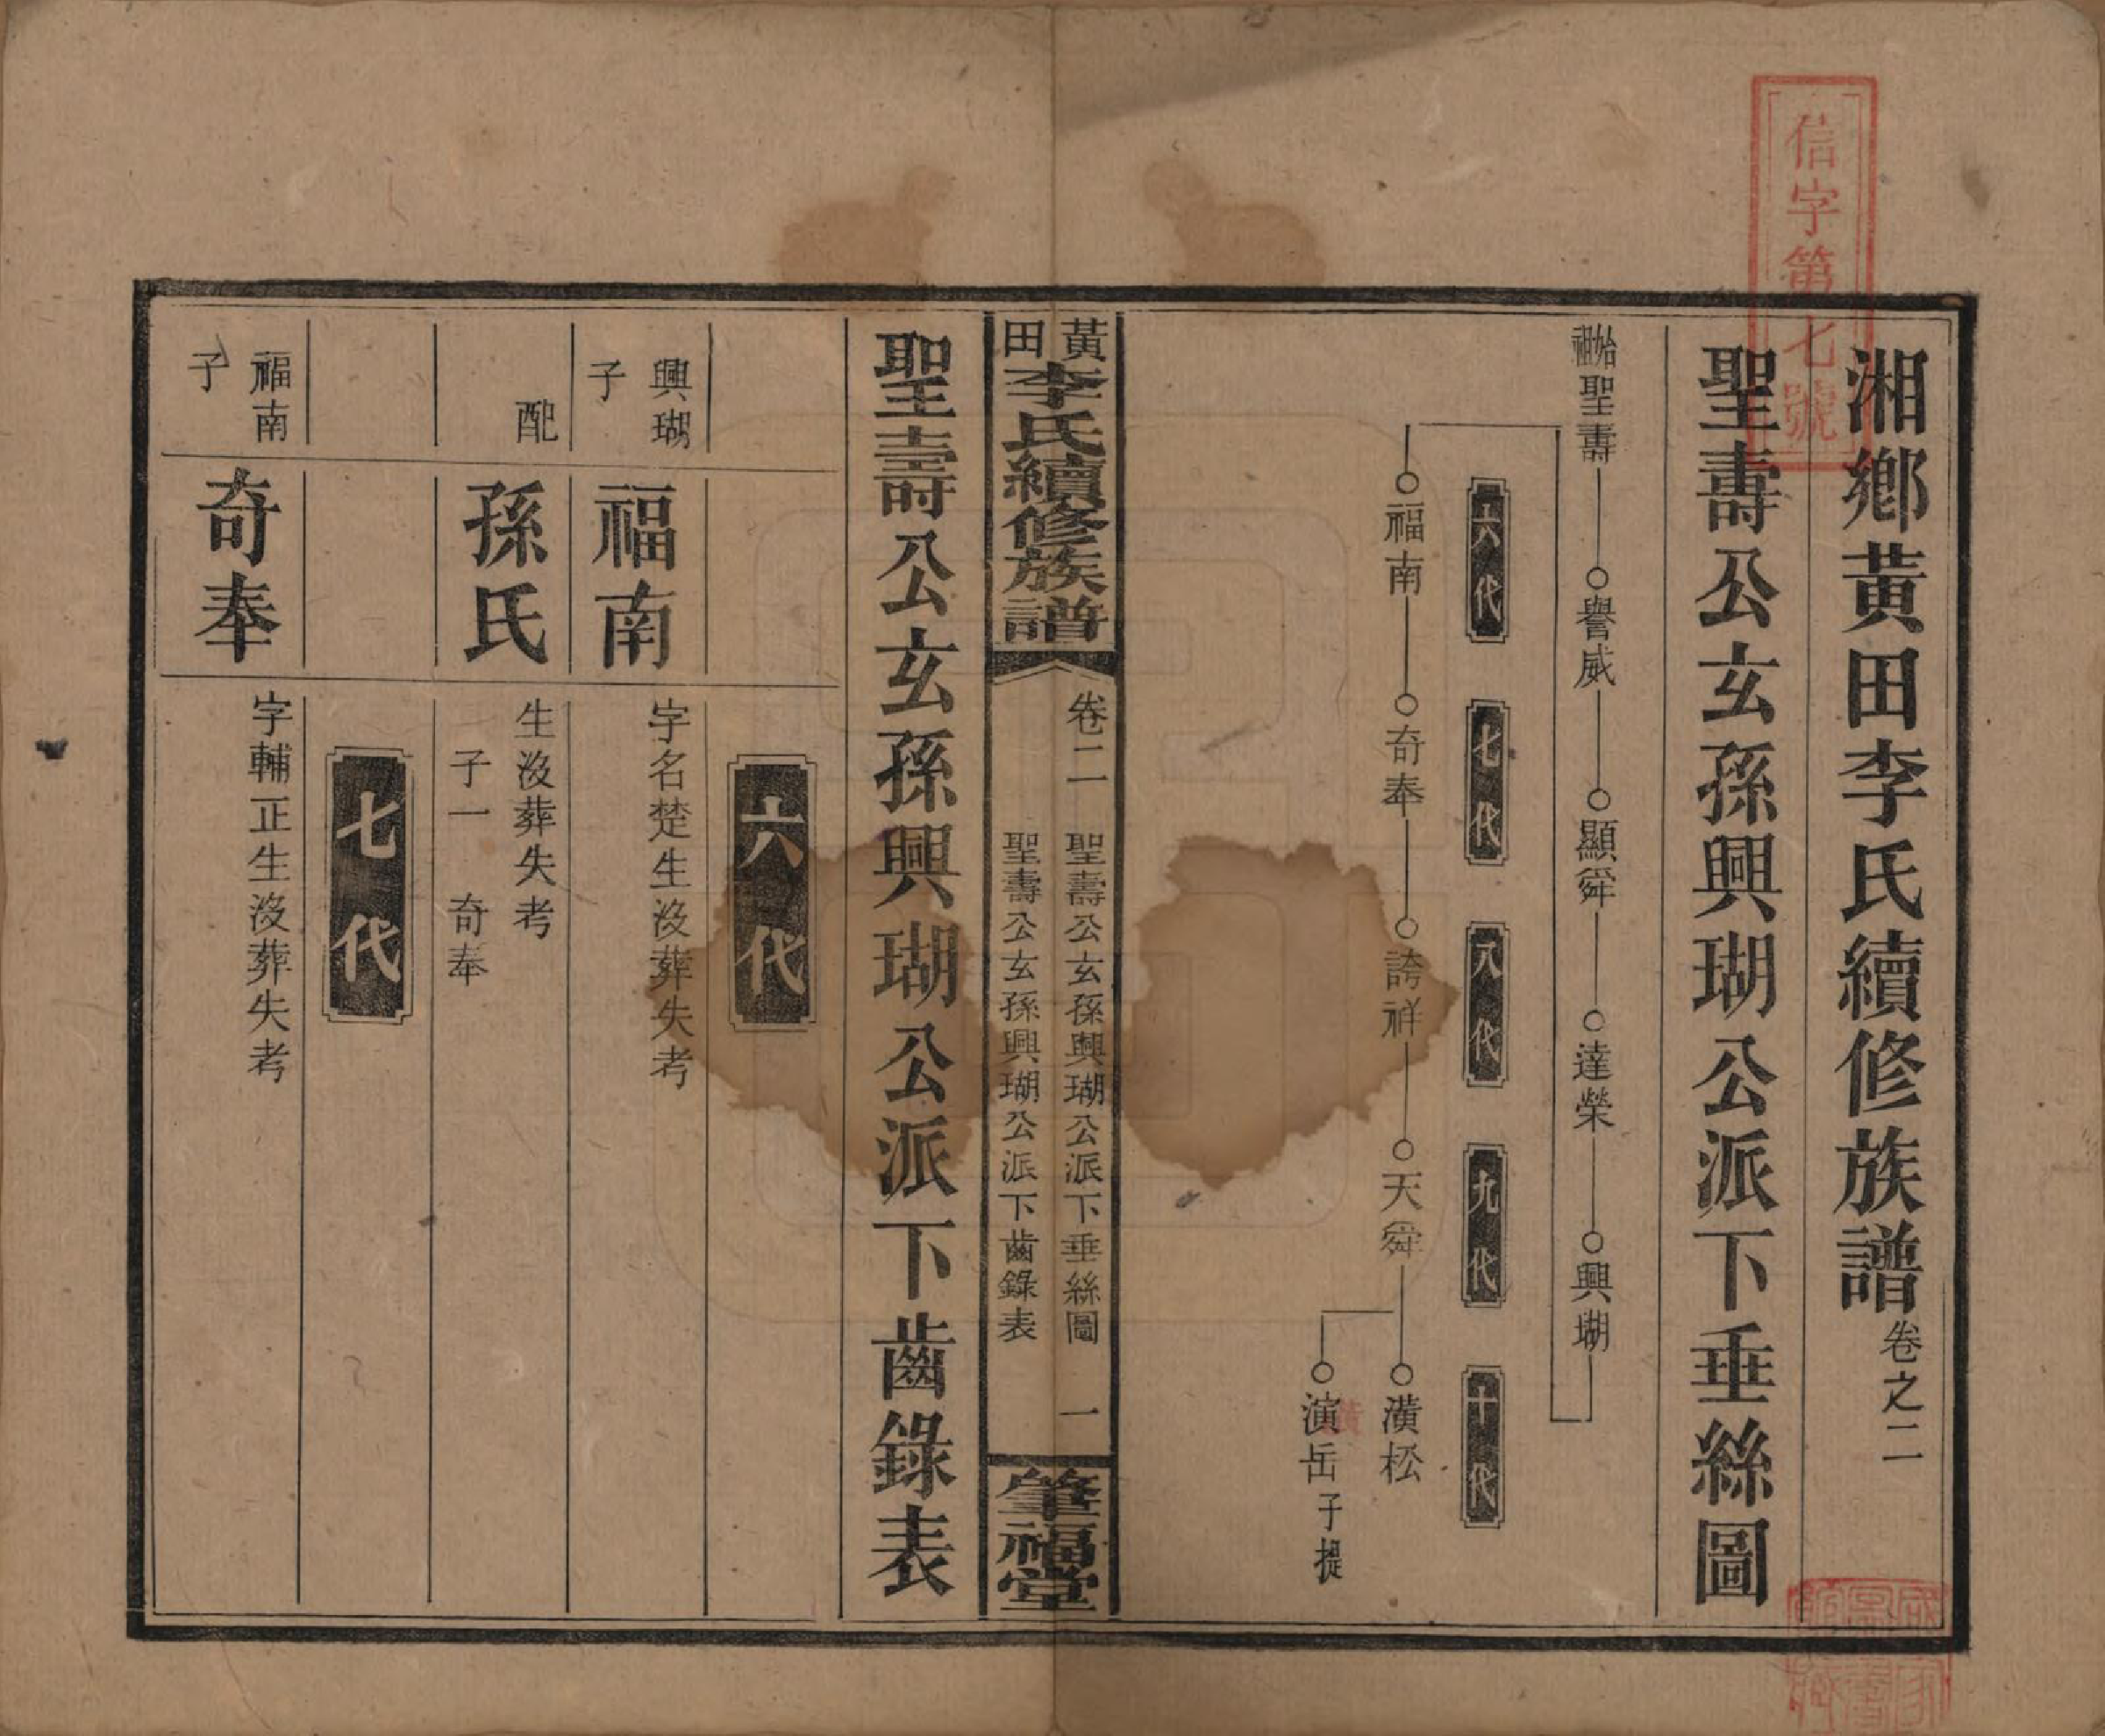 信字第七號
湘鄉黃田李氏續修族譜卷之二
聖壽公玄孫興瑚公派下垂絲圖
始祖聖壽
譽威
顯舜
達榮
興瑚
六代
七代
八代
九代
十代
福南
奇奉
誇祥
天舜
潢松
演岳子提
黃田李氏續修族譜
卷二
聖壽公玄孫興瑚公派下垂絲圖
聖壽公玄孫興瑚公派下齒錄表
一
肇福堂
聖壽公玄孫興瑚公派下齒錄表
六代
興瑚子
福南
字名楚生沒葬失考
配
孫氏
生沒葬失考
子一 奇奉
七代
福南子
奇奉
字輔正生沒葬失考